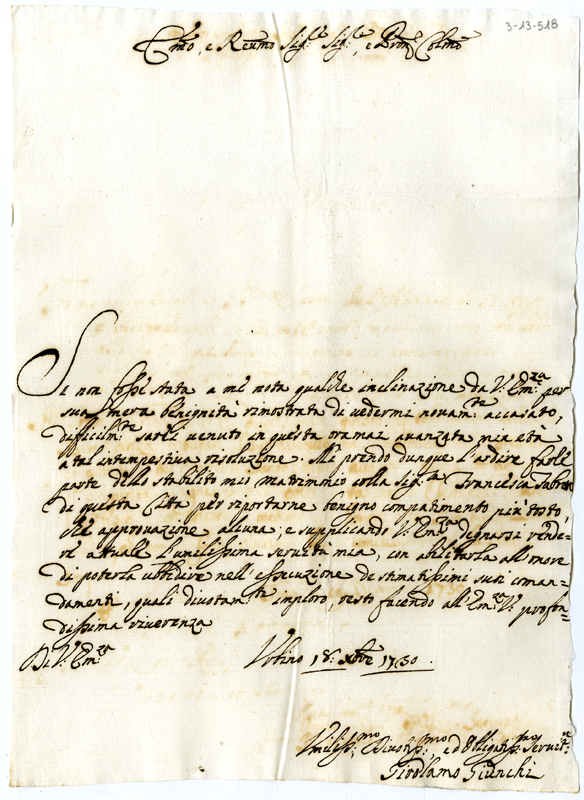 3-13-518
Emo, e Reumo Sig.r Sig.r, e Pron Colmo
Se non fosse stata a mè nota qualche inclinazione da V.Em.za per
sua mera benignità rimostrata di vedermi novam.te accasato,
difficilm.te sarei venuto in questa oramai avanzata mia età
a tal intempestiva risoluzione. Mi prendo dunque l'ardire farle
parte dello stabilito mio matrimonio colla Sig.ra Francesca
di questa Città per riportarne benigno compatimento più tosto
che approvazione alcuna; e supplicando V.Em.za degnarsi rende-
re attuale l'umilissima servitù mia, con abilitarla all'onore
di poterla ubbidire nell'essecuzione de stimatissimi suoi coman-
damenti, quali divotam.te imploro, resto facendo all'Em.za V. profon-
dissima riverenza
Di V.Em.za Urbino 18: Xbre 1730.
Umiliss.mo Divotiss.mo, ed Obligatiss.mo Servit.re
Girolamo Giunchi